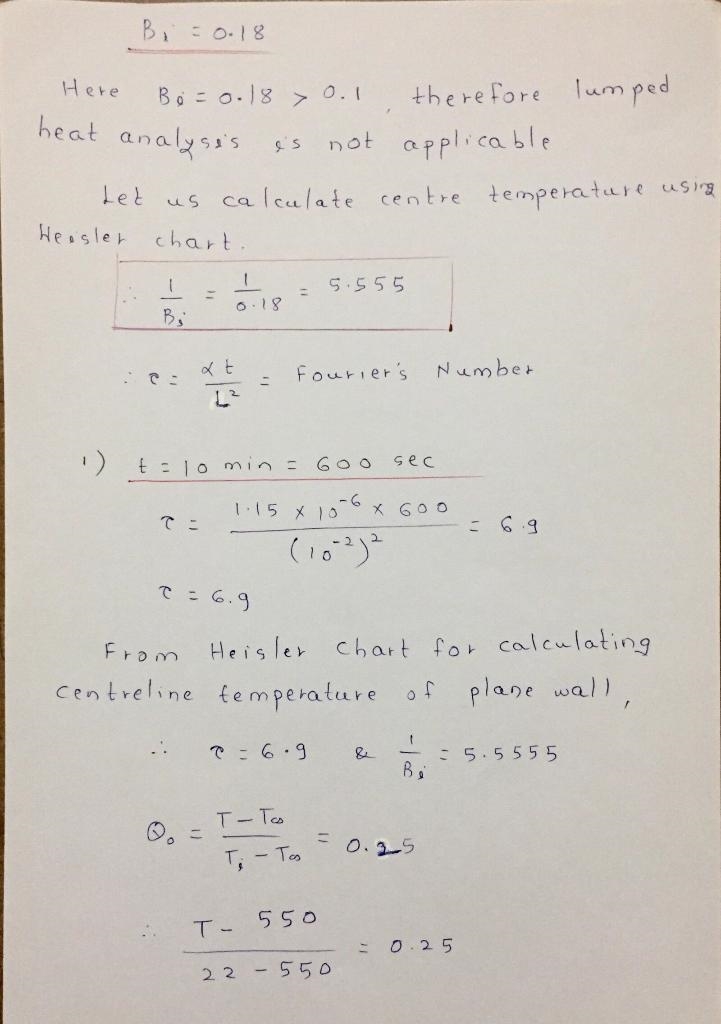 Bi = 0.18
Here Bi = 0.18 > 0.1, therefore lumped
heat analysis is not applicable
Let us calculate centre temperature using
Heisler chart.
∴ 1/Bi = 1/0.18 = 5.555
∴ τ = αt/L² = Fourier's Number
1) t = 10 min = 600 sec
τ = 1.15 × 10⁻⁶ × 600 / (10⁻²)² = 6.9
τ = 6.9
From Heisler Chart for calculating
centreline temperature of plane wall,
∴ τ = 6.9 & 1/Bi = 5.5555
Θ₀ = T - T∞ / Ti - T∞ = 0.25
∴ T - 550 / 22 - 550 = 0.25